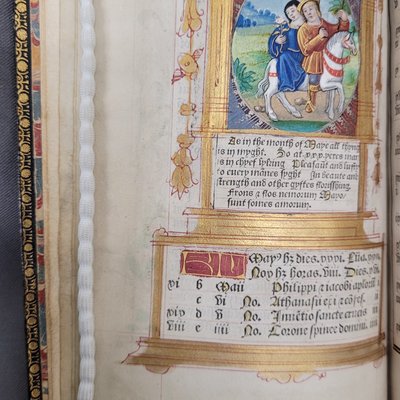 As in the month of Maye all thyng
is in myght. So at xxx yeres man
is in chyef lyking Pleasaūt and lusty
to every mānes syght In beaute and
strength and other gyftes flourishyng.
Frons & flos nemorum Mayo/
sunt fomes amorum.
Mayꝰ hʒ dies.xxxi. Lūa.xxx.
Nox hʒ horas.viii. Dies.xvi.
xi b Maii Philippi & iacobi aplorū
c vi No. Athanasii epi & cōfes.
xix d v No. Inuētio sancte crucis
viii e iiii No. Corone spinee domini.